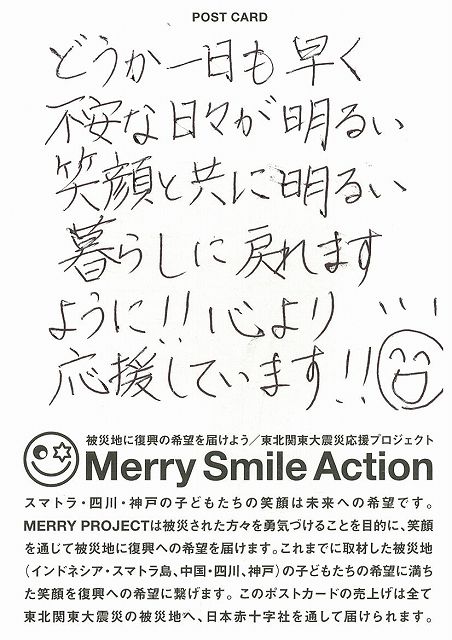 POST CARD
どうか一日も早く
不安な日々が明るい
笑顔と共に明るい
暮らしに戻れます
ように!! 心より
応援しています!!
被災地に復興の希望を届けよう／東北関東大震災応援プロジェクト
Merry Smile Action
スマトラ・四川・神戸の子どもたちの笑顔は未来への希望です。
MERRY PROJECTは被災された方々を勇気づけることを目的に、笑顔
を通じて被災地に復興への希望を届けます。これまでに取材した被災地
（インドネシア・スマトラ島、中国・四川、神戸）の子どもたちの希望に満ち
た笑顔を復興への希望に繋げます。このポストカードの売上げは全て
東北関東大震災の被災地へ、日本赤十字社を通して届けられます。